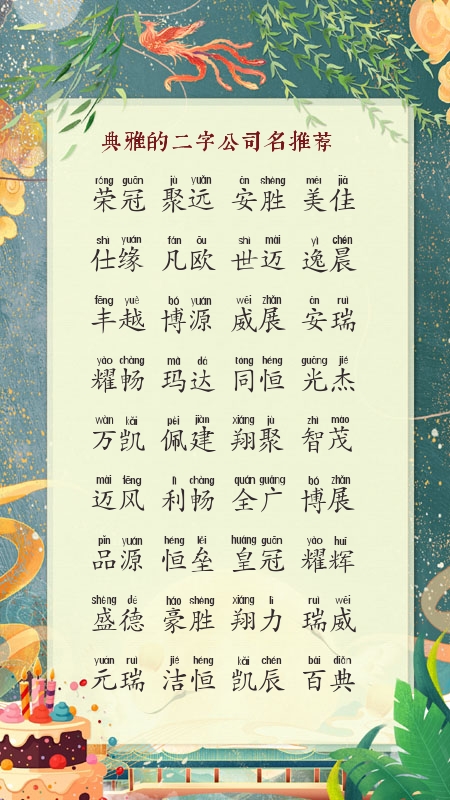 典雅的二字公司名推荐
róng guān jù yuǎn ān shèng měi jiā
荣冠 聚远 安胜 美佳
shì yuán fán ōu shì mài yì chén
仕缘 凡欧 世迈 逸晨
fēng yuè bó yuán wēi zhǎn ān ruì
丰越 博源 威展 安瑞
yào chàng mǎ dá tóng héng guāng jié
耀畅 玛达 同恒 光杰
wàn kǎi pèi jiàn xiáng jù zhì mào
万凯 佩建 翔聚 智茂
mài fēng lì chàng quán guǎng bó zhǎn
迈风 利畅 全广 博展
pǐn yuán héng lěi huáng guān yào huī
品源 恒垒 皇冠 耀辉
shèng dé háo shèng xiáng lì ruì wēi
盛德 豪胜 翔力 瑞威
yuán ruì jié héng kǎi chén bǎi diǎn
元瑞 洁恒 凯辰 百典